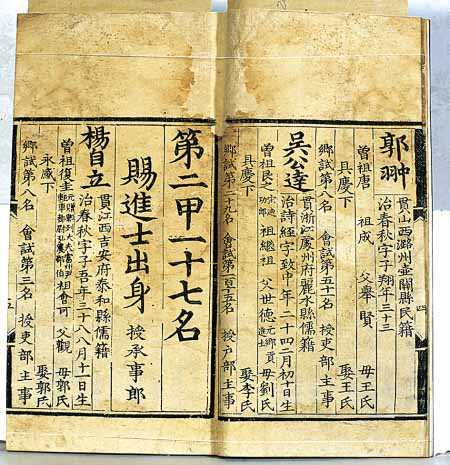 郭翀
貫山西潞州壺關縣民籍
治春秋字子翔年三十三
曾祖唐 祖成 父舉賢 母王氏
具慶下 娶王氏
鄉試第八名 會試第五十名 授吏部主事
吳公達
貫浙江處州府麗水縣儒籍
治詩經字致中年二十四二月初十日生
曾祖艮之 宋迪功郎 祖繼祖 父世德 元鄉貢進士 母劉氏
具慶下 娶李氏
鄉試第二十九名 會試第百十五名 授戶部主事
四
第二甲一十七名
賜進士出身 授承事郎
楊自立
貫江西吉安府泰和縣儒籍
治春秋字子吾年三十八八月十一日生
曾祖復圭 元贈朝列大夫富州尹 祖會可 父觀 母郭氏
永感下 娶郭氏
鄉試第八名 會試第三名 授吏部主事
五